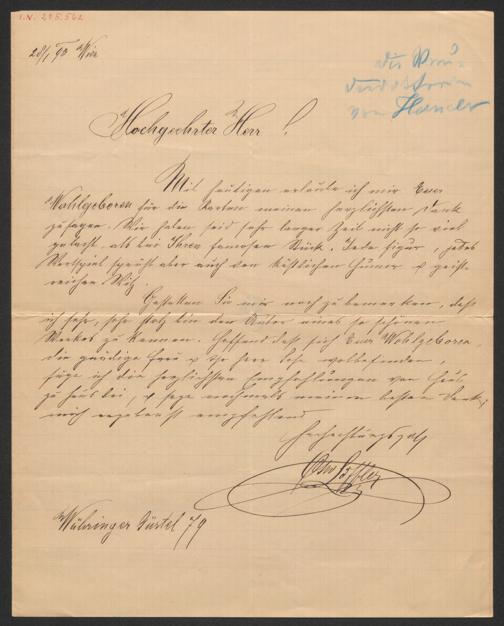 I.N. 205.562
28/1 93 Wien
Hochgeehrter Herr !
Mit heutigen erlaube ich mir Euer
Wohlgeboren für die Karten meinen herzlichsten Dank
zu sagen. Wir haben seid sehr langer Zeit nicht so viel
gelacht, als bei Ihren famosen Stück. Jede Figur, jedes
Wortspiel sprüht aber auch von köstlichen Humor & geist-
reichen Witz.
Gestatten Sie mir noch zu bemerken, daß
ich sehr, sehr stolz bin den Autor eines so schönen
Werkes zu kennen. Hoffend daß sich Euer Wohlgeboren
die gnädige Frau & Ihr Herr wolbefinden,
füge ich die herzlichsten Empfehlungen von
zu Haus bei, & sage nochmals meinen besten Dank,
mich ergebenst empfehlend
Hochachtungsvoll
Währinger Gürtel 79